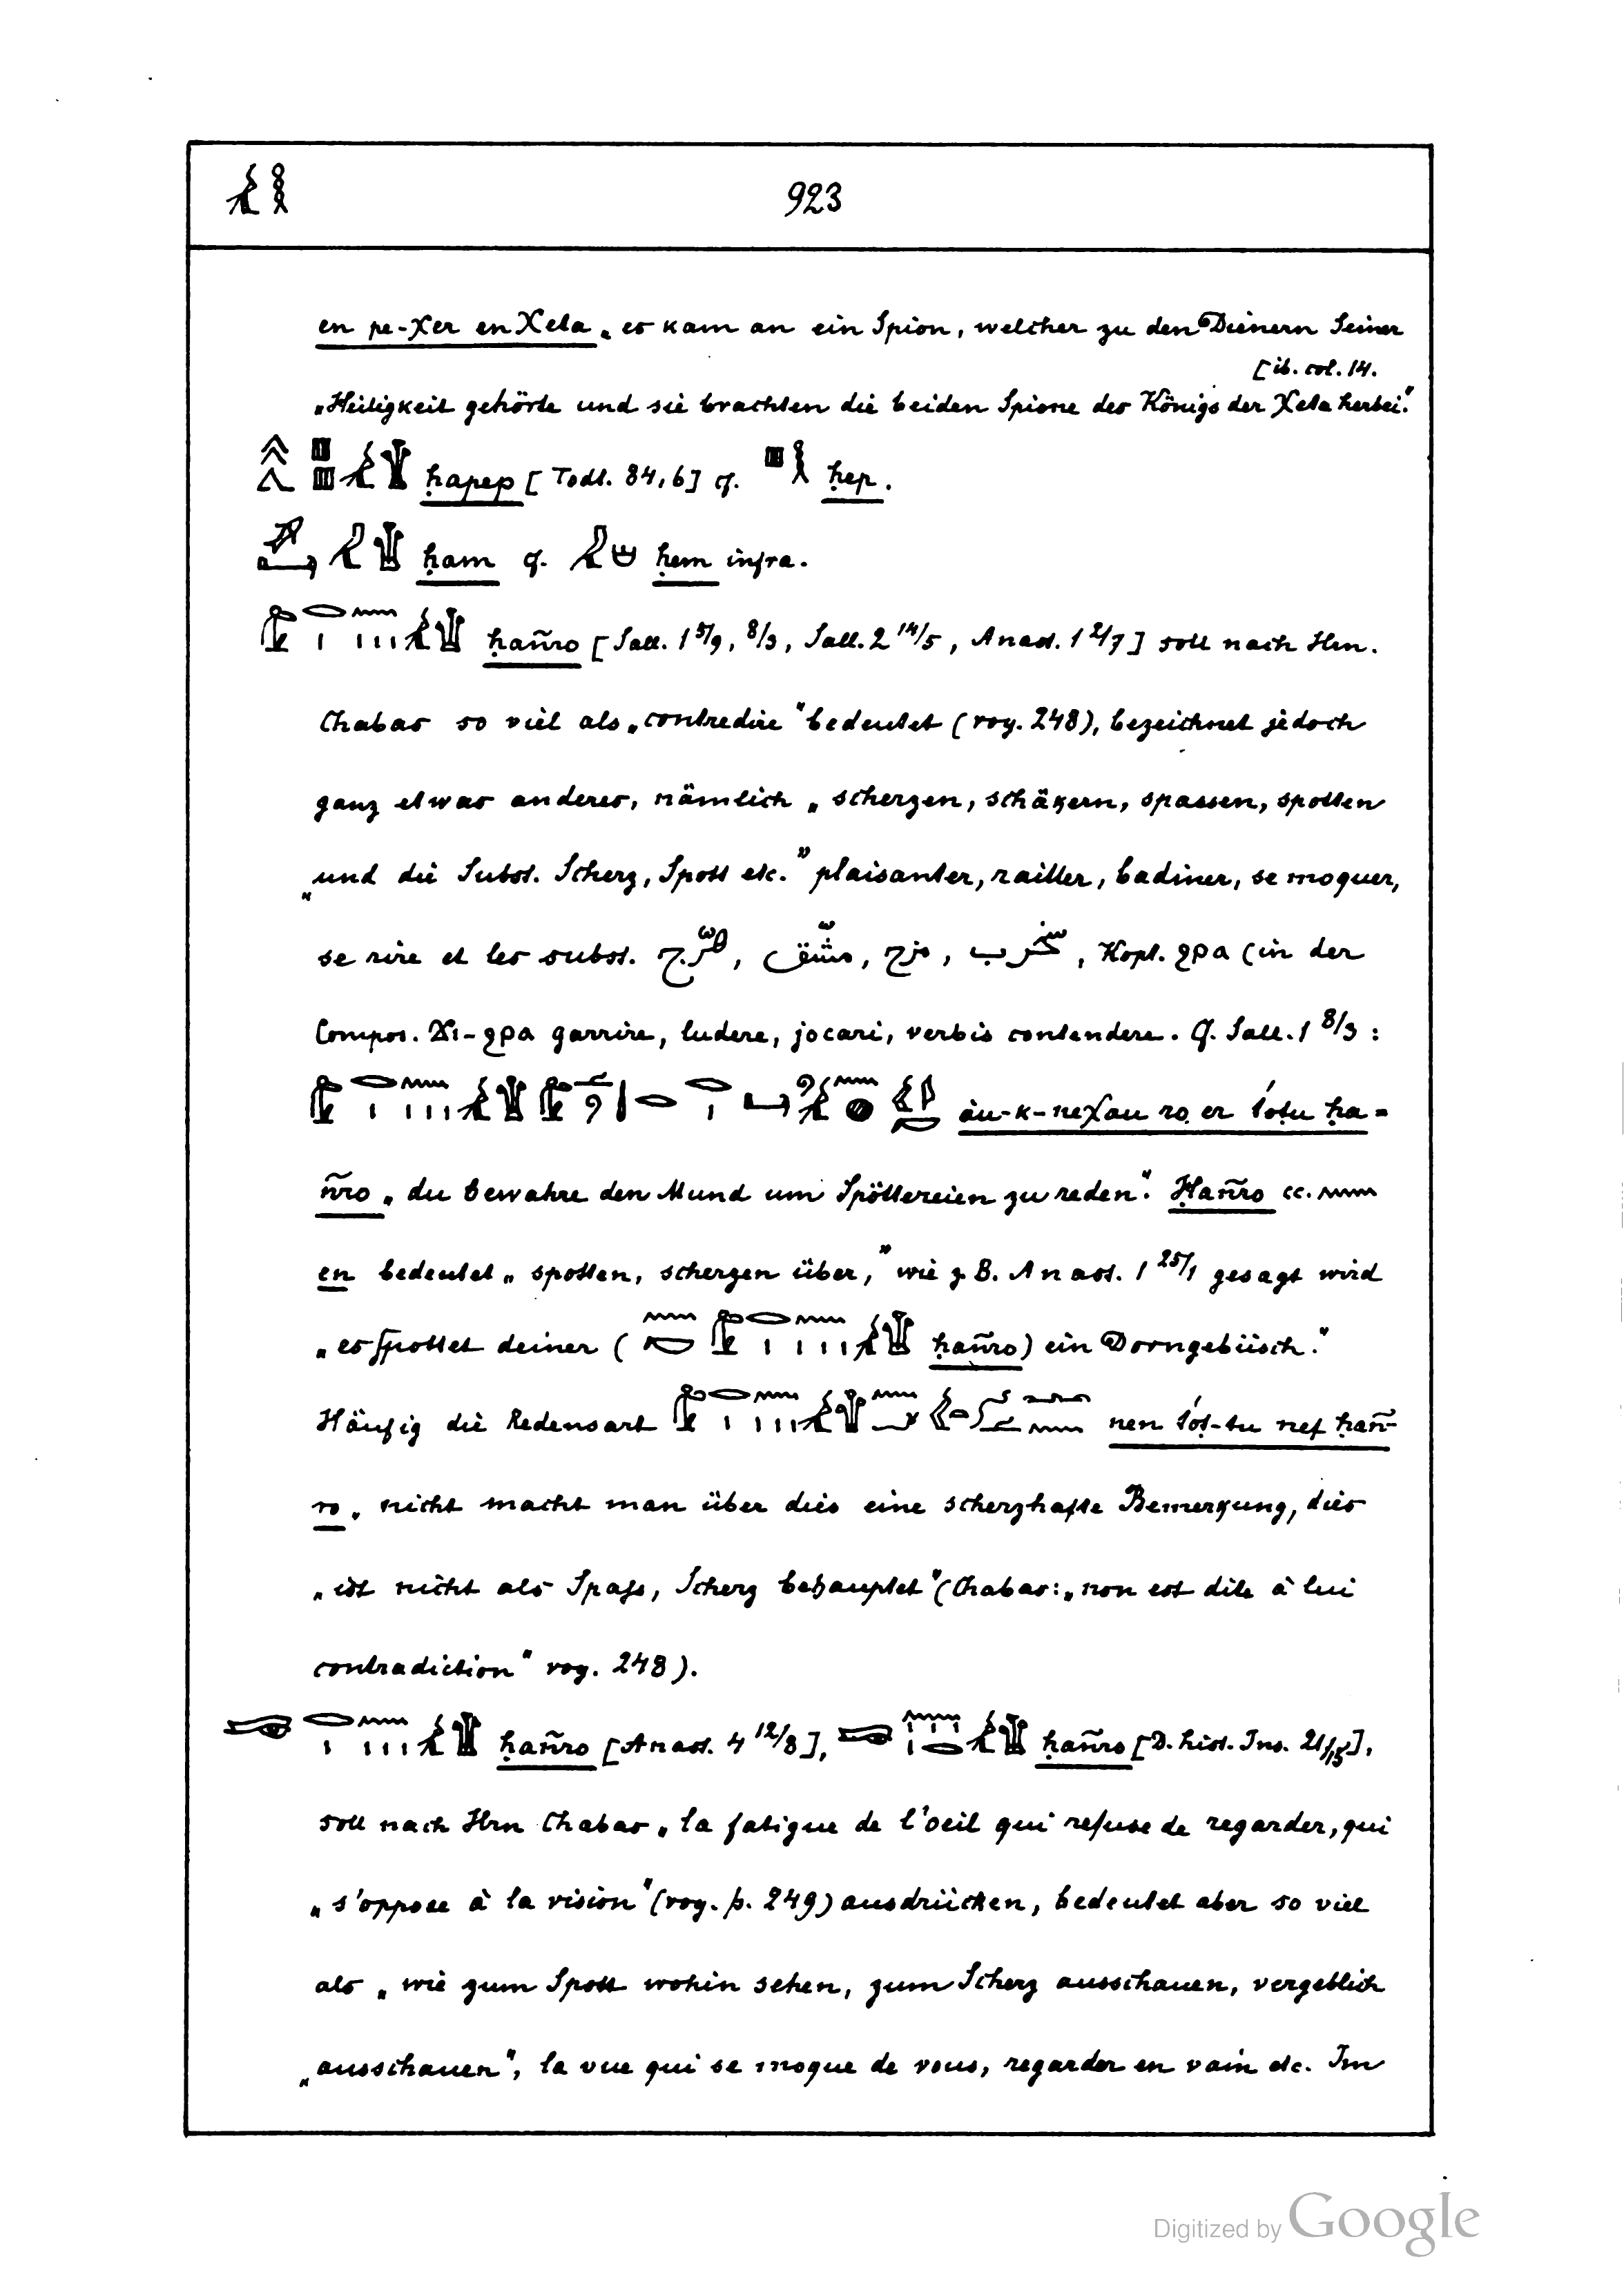 923
en pe-χer en Xeta „es kam an ein Spion, welcher zu den Dienern Seiner
[ib. col. 14.
„Heiligkeit gehörte und sie brachten die beiden Spione des Königs der Xeta herbei."
ḥapep [Todt. 84,6] cf. ḥep.
ḥam cf. ḥem infra.
ḥan̄ro [Sall. 1 5/9, 8/3, Sall. 2 14/5, Anast. 1 2/7] soll nach Hrn.
Chabas so viel als „contredire" bedeutet (voy. 248), bezeichnet jedoch
ganz etwas anderes, nämlich „scherzen, schäkern, spassen, spotten
„und die Subst. Scherz, Spott etc." plaisanter, railler, badiner, se moquer,
se rire et les subst. مزح, Kopt. ϩρα (in der
Compos. ϫι-ϩρα garrire, ludere, jocari, verbis contendere. Cf. Sall. 1 8/3:
áu-k-neχau ro er t'oṭu ḥa=
n̄ro „du bewahre den Mund um Spöttereien zu reden". Ḥan̄ro cc.
en bedeutet „spotten, scherzen über," wie z. B. Anast. 1 25/1 gesagt wird
„es spottet deiner ( ḥan̄ro) ein Dorngebüsch."
Häufig die Redensart nen t'oṭ-tu nef ḥan̄-
ro „nicht macht man über dies eine scherzhafte Bemerkung, dies
„ist nicht als Spaß, Scherz behauptet" (Chabas: „non est dite à lui
contradiction" voy. 248).
ḥan̄ro [Anast. 4 12/8], ḥan̄ro [D. hist. Ins. 21/15],
soll nach Hrn Chabas „la fatigue de l'oeil qui refuse de regarder, qui
„s'oppose à la vision" (voy. p. 249) ausdrücken, bedeutet aber so viel
als „wie zum Spott wohin sehen, zum Scherz ausschauen, vergeblich
„ausschauen", la vue qui se moque de vous, regarder en vain etc. Im
Digitized by Google